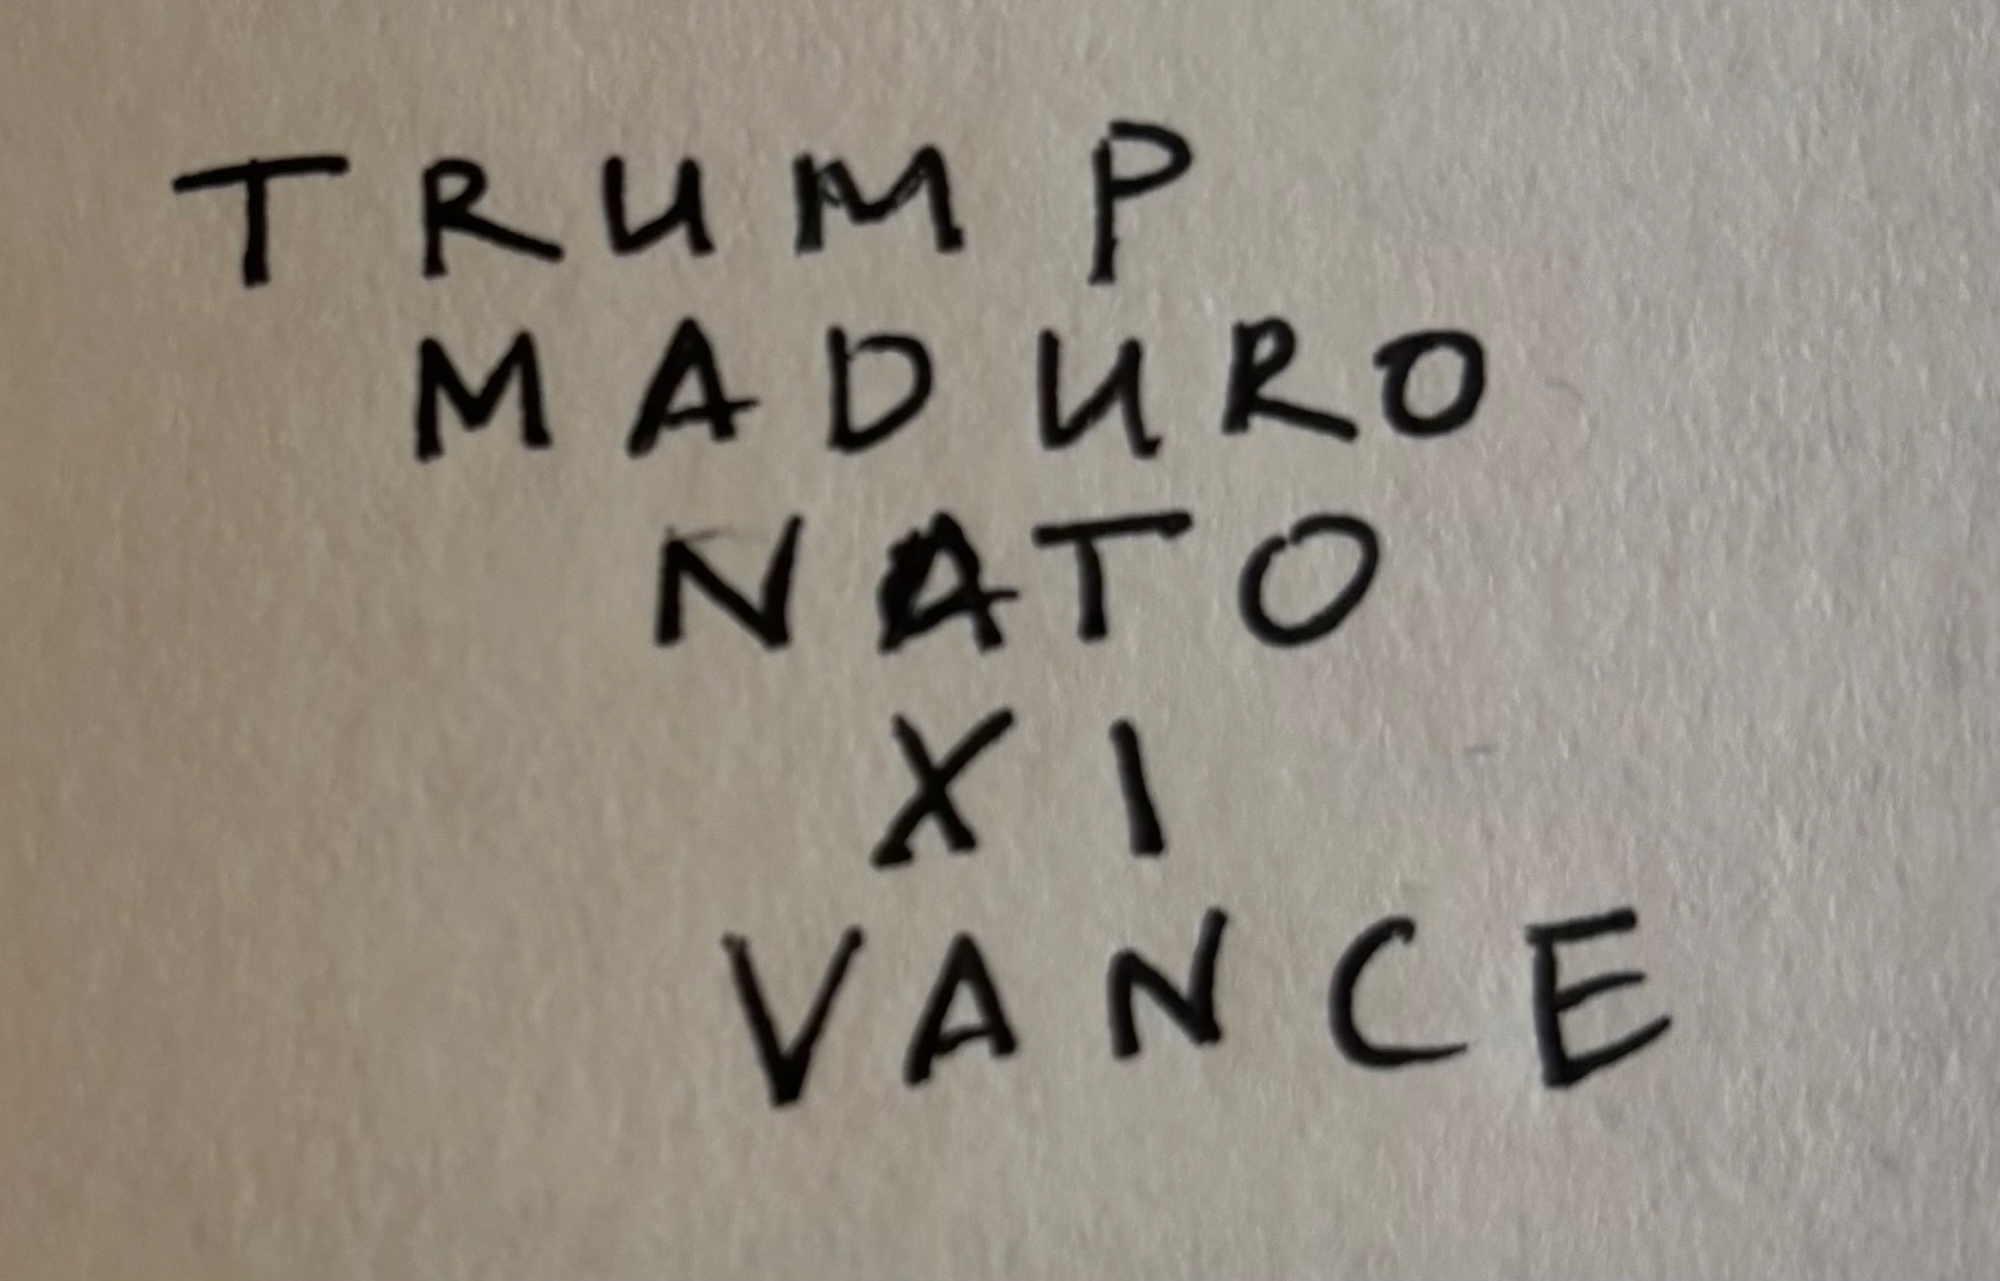 TRUMP
MADURO
NATO
XI
VANCE